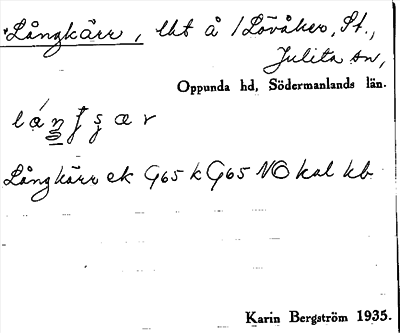 Långkärr, lht å /Lövåker, St.,
Julita sn,
Oppunda hd, Södermanlands län.
Långkärr ek G65 k G65 NO kal kb
Karin Bergström 1935.